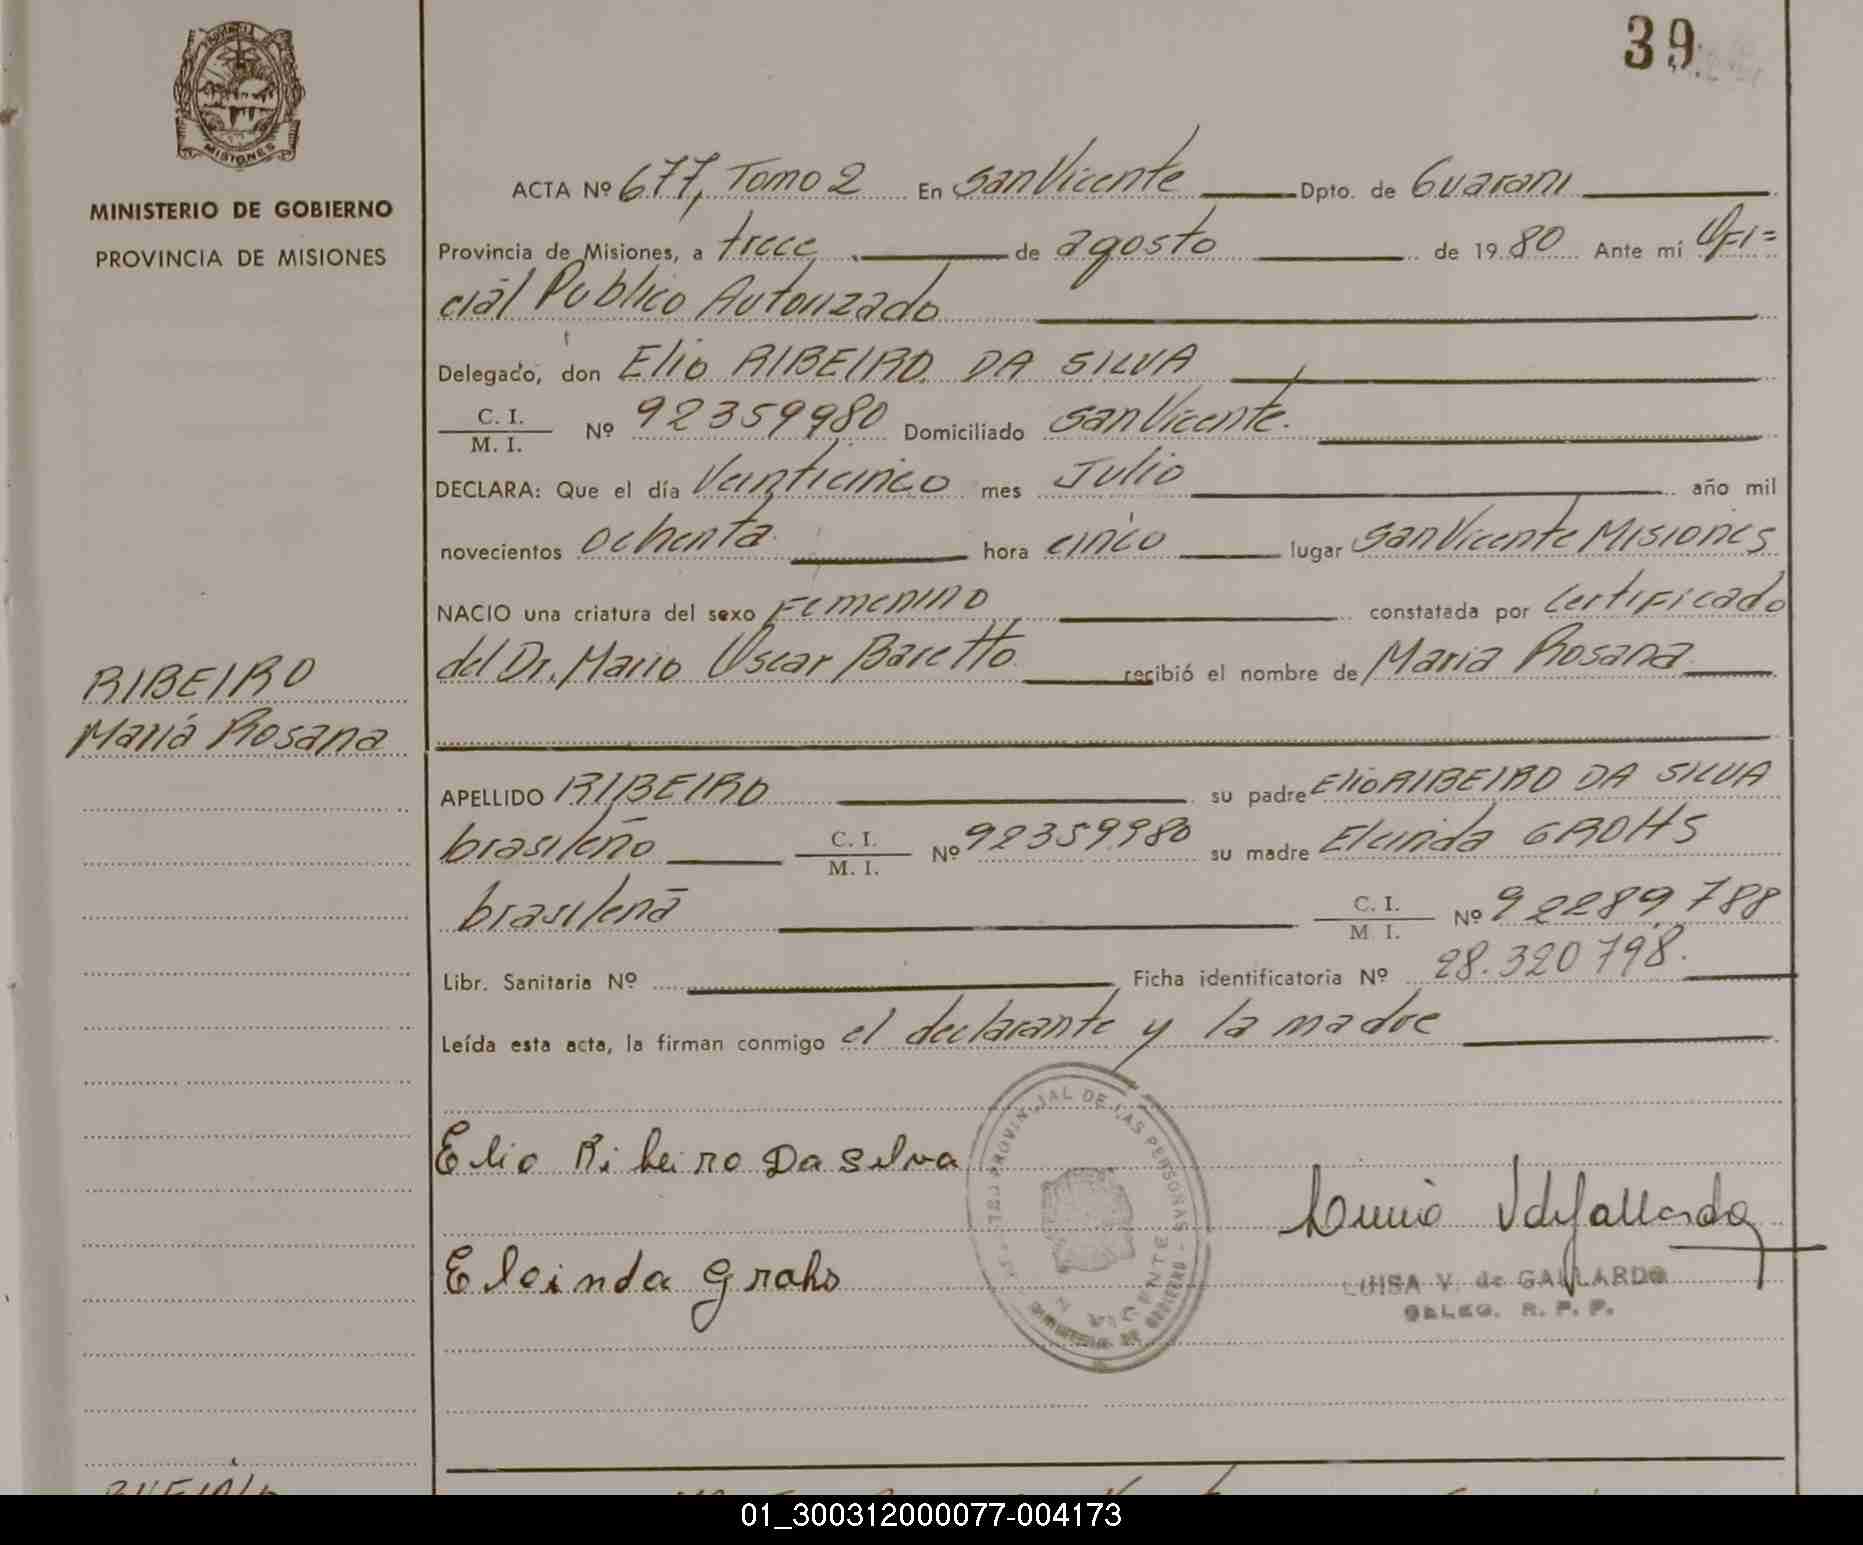 39
PROVINCIA
MISIONES
MINISTERIO DE GOBIERNO
PROVINCIA DE MISIONES
ACTA Nº 677, Tomo 2 En San Vicente Dpto. de Guarani
Provincia de Misiones, a trece de agosto de 1980 Ante mí Ofi=
cial Publico Autorizado
Delegado, don Elio RIBEIRO DA SILVA
C. I.
M. I. Nº 92359980 Domiciliado San Vicente.
DECLARA: Que el día Veinticinco mes Julio año mil
novecientos ochenta hora cinco lugar San Vicente Misiones
NACIO una criatura del sexo Femenino constatada por Certificado
del Dr. Mario Oscar Baretto recibió el nombre de Maria Rosana
RIBEIRO
Maria Rosana
APELLIDO RIBEIRO su padre Elio RIBEIRO DA SILVA
brasileño C. I.
M. I. Nº 92359980 su madre Elcinda GROHS
brasileña C. I.
M. I. Nº 92289.788
Libr. Sanitaria Nº Ficha identificatoria Nº 28.320798.
Leída esta acta, la firman conmigo el declarante y la madre
Elio Ribeiro Da Silva
PROVINCIAL DE LAS PERSONAS
VICENTE
GOBIERNO
V de Gallardo
Elcinda Grohs
LUISA V. de GALLARDO
DELEG. R. P. P.
01_300312000077-004173